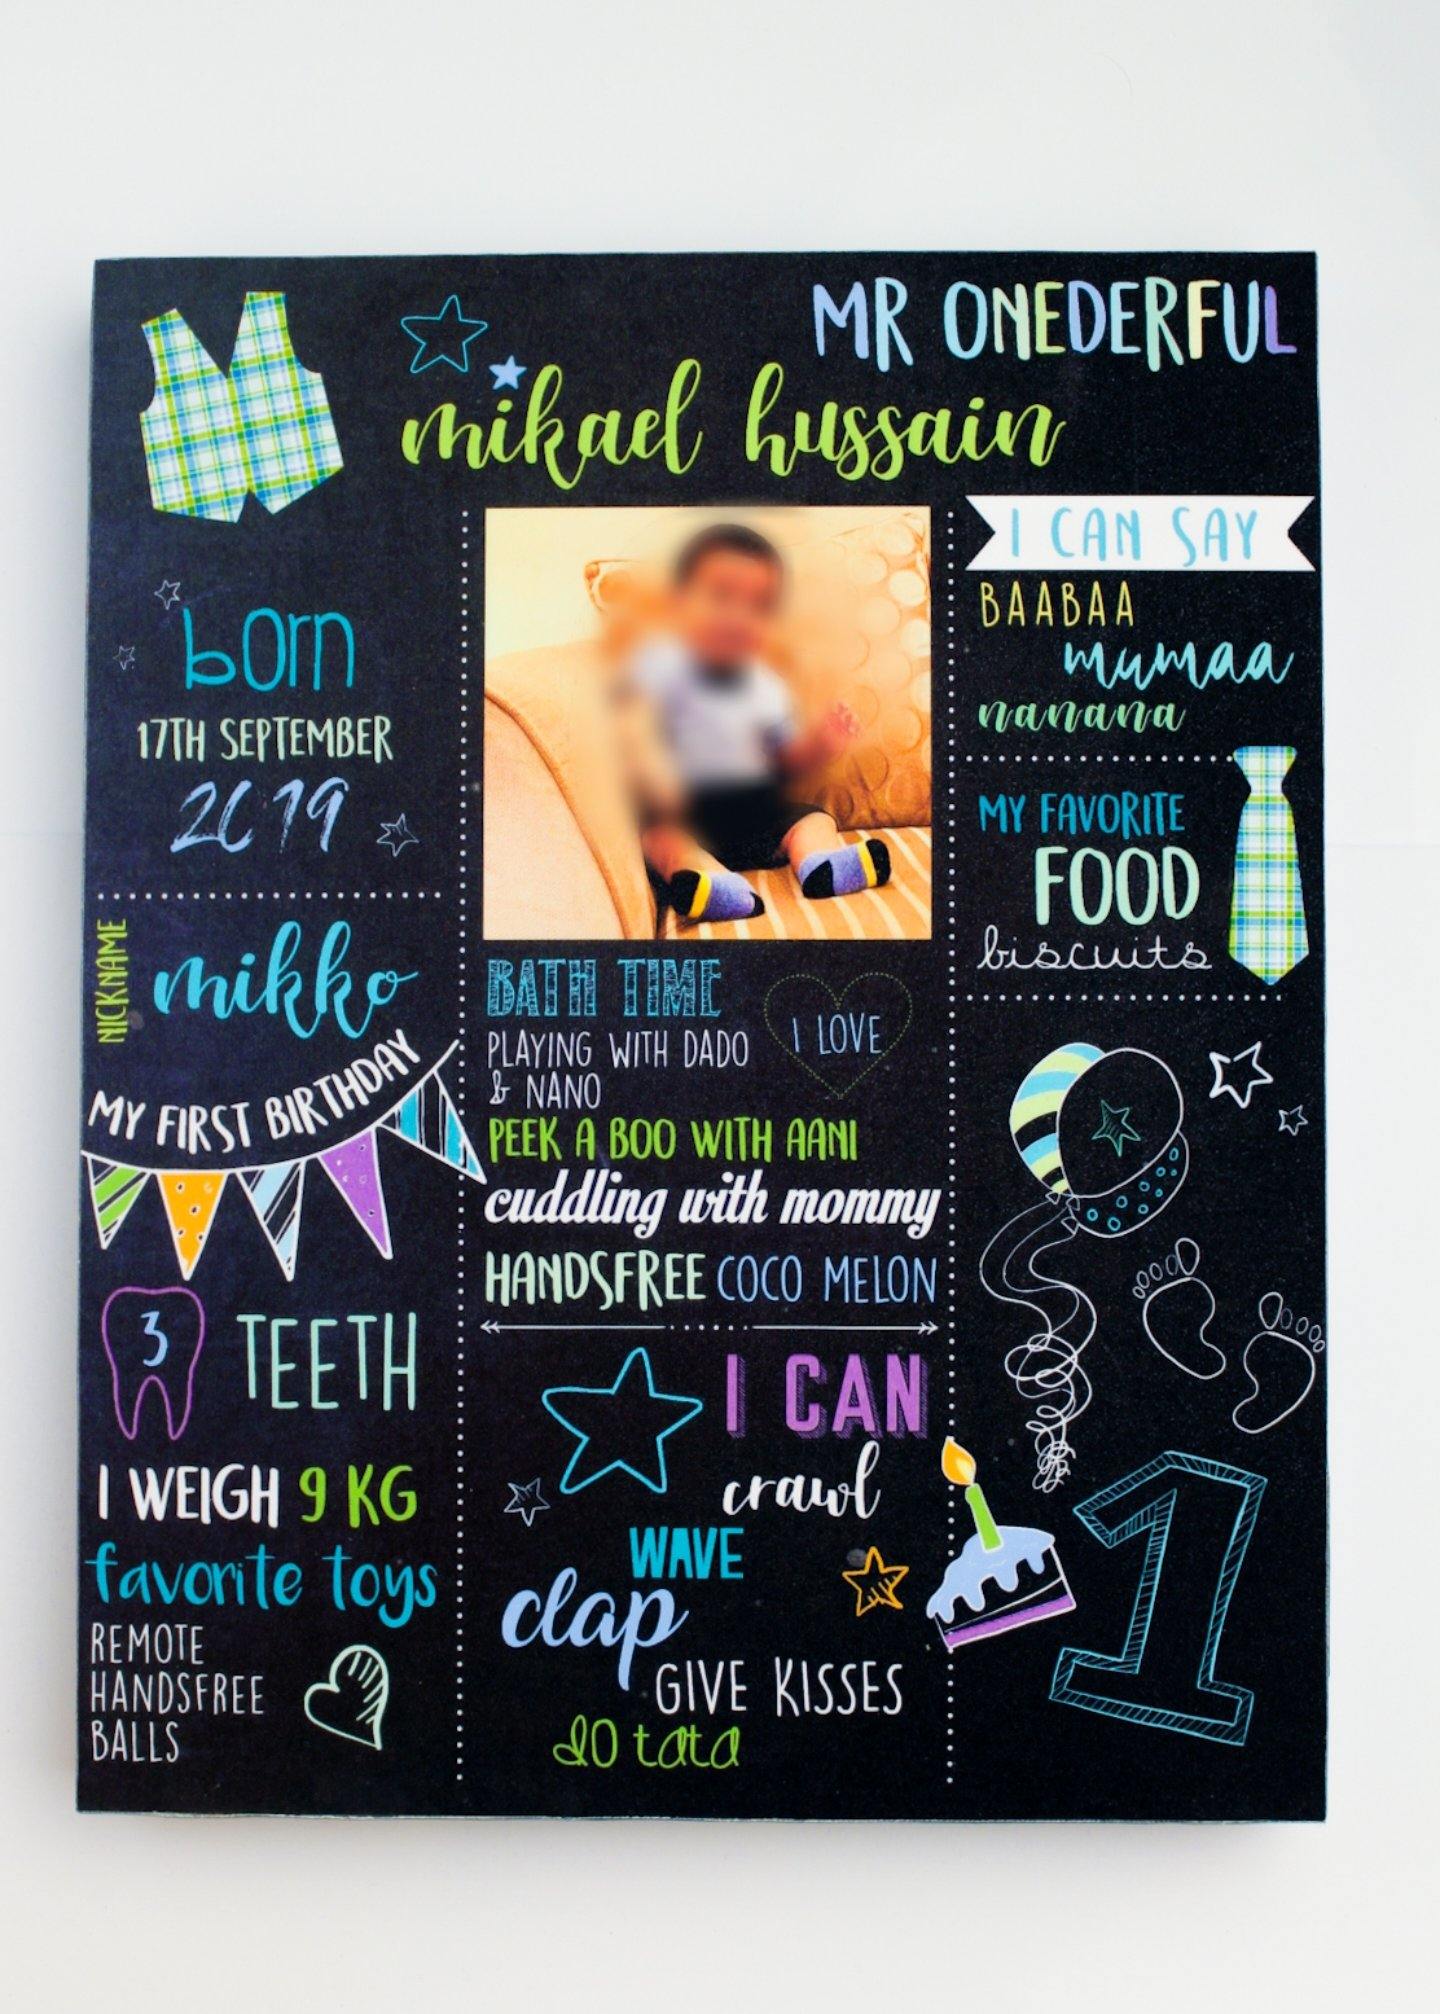 MR ONEDERFUL
mikael hussain
born
17TH SEPTEMBER
2019
NICKNAME
mikko
MY FIRST BIRTHDAY
3
TEETH
I WEIGH 9 KG
favorite toys
REMOTE
HANDSFREE
BALLS
BATH TIME
I LOVE
PLAYING WITH DADO
& NANO
PEEK A BOO WITH AANI
cuddling with mommy
HANDSFREE COCO MELON
I CAN
crawl
WAVE
clap
GIVE KISSES
do tata
I CAN SAY
BAABAA
mumaa
nanana
MY FAVORITE
FOOD
biscuits
1